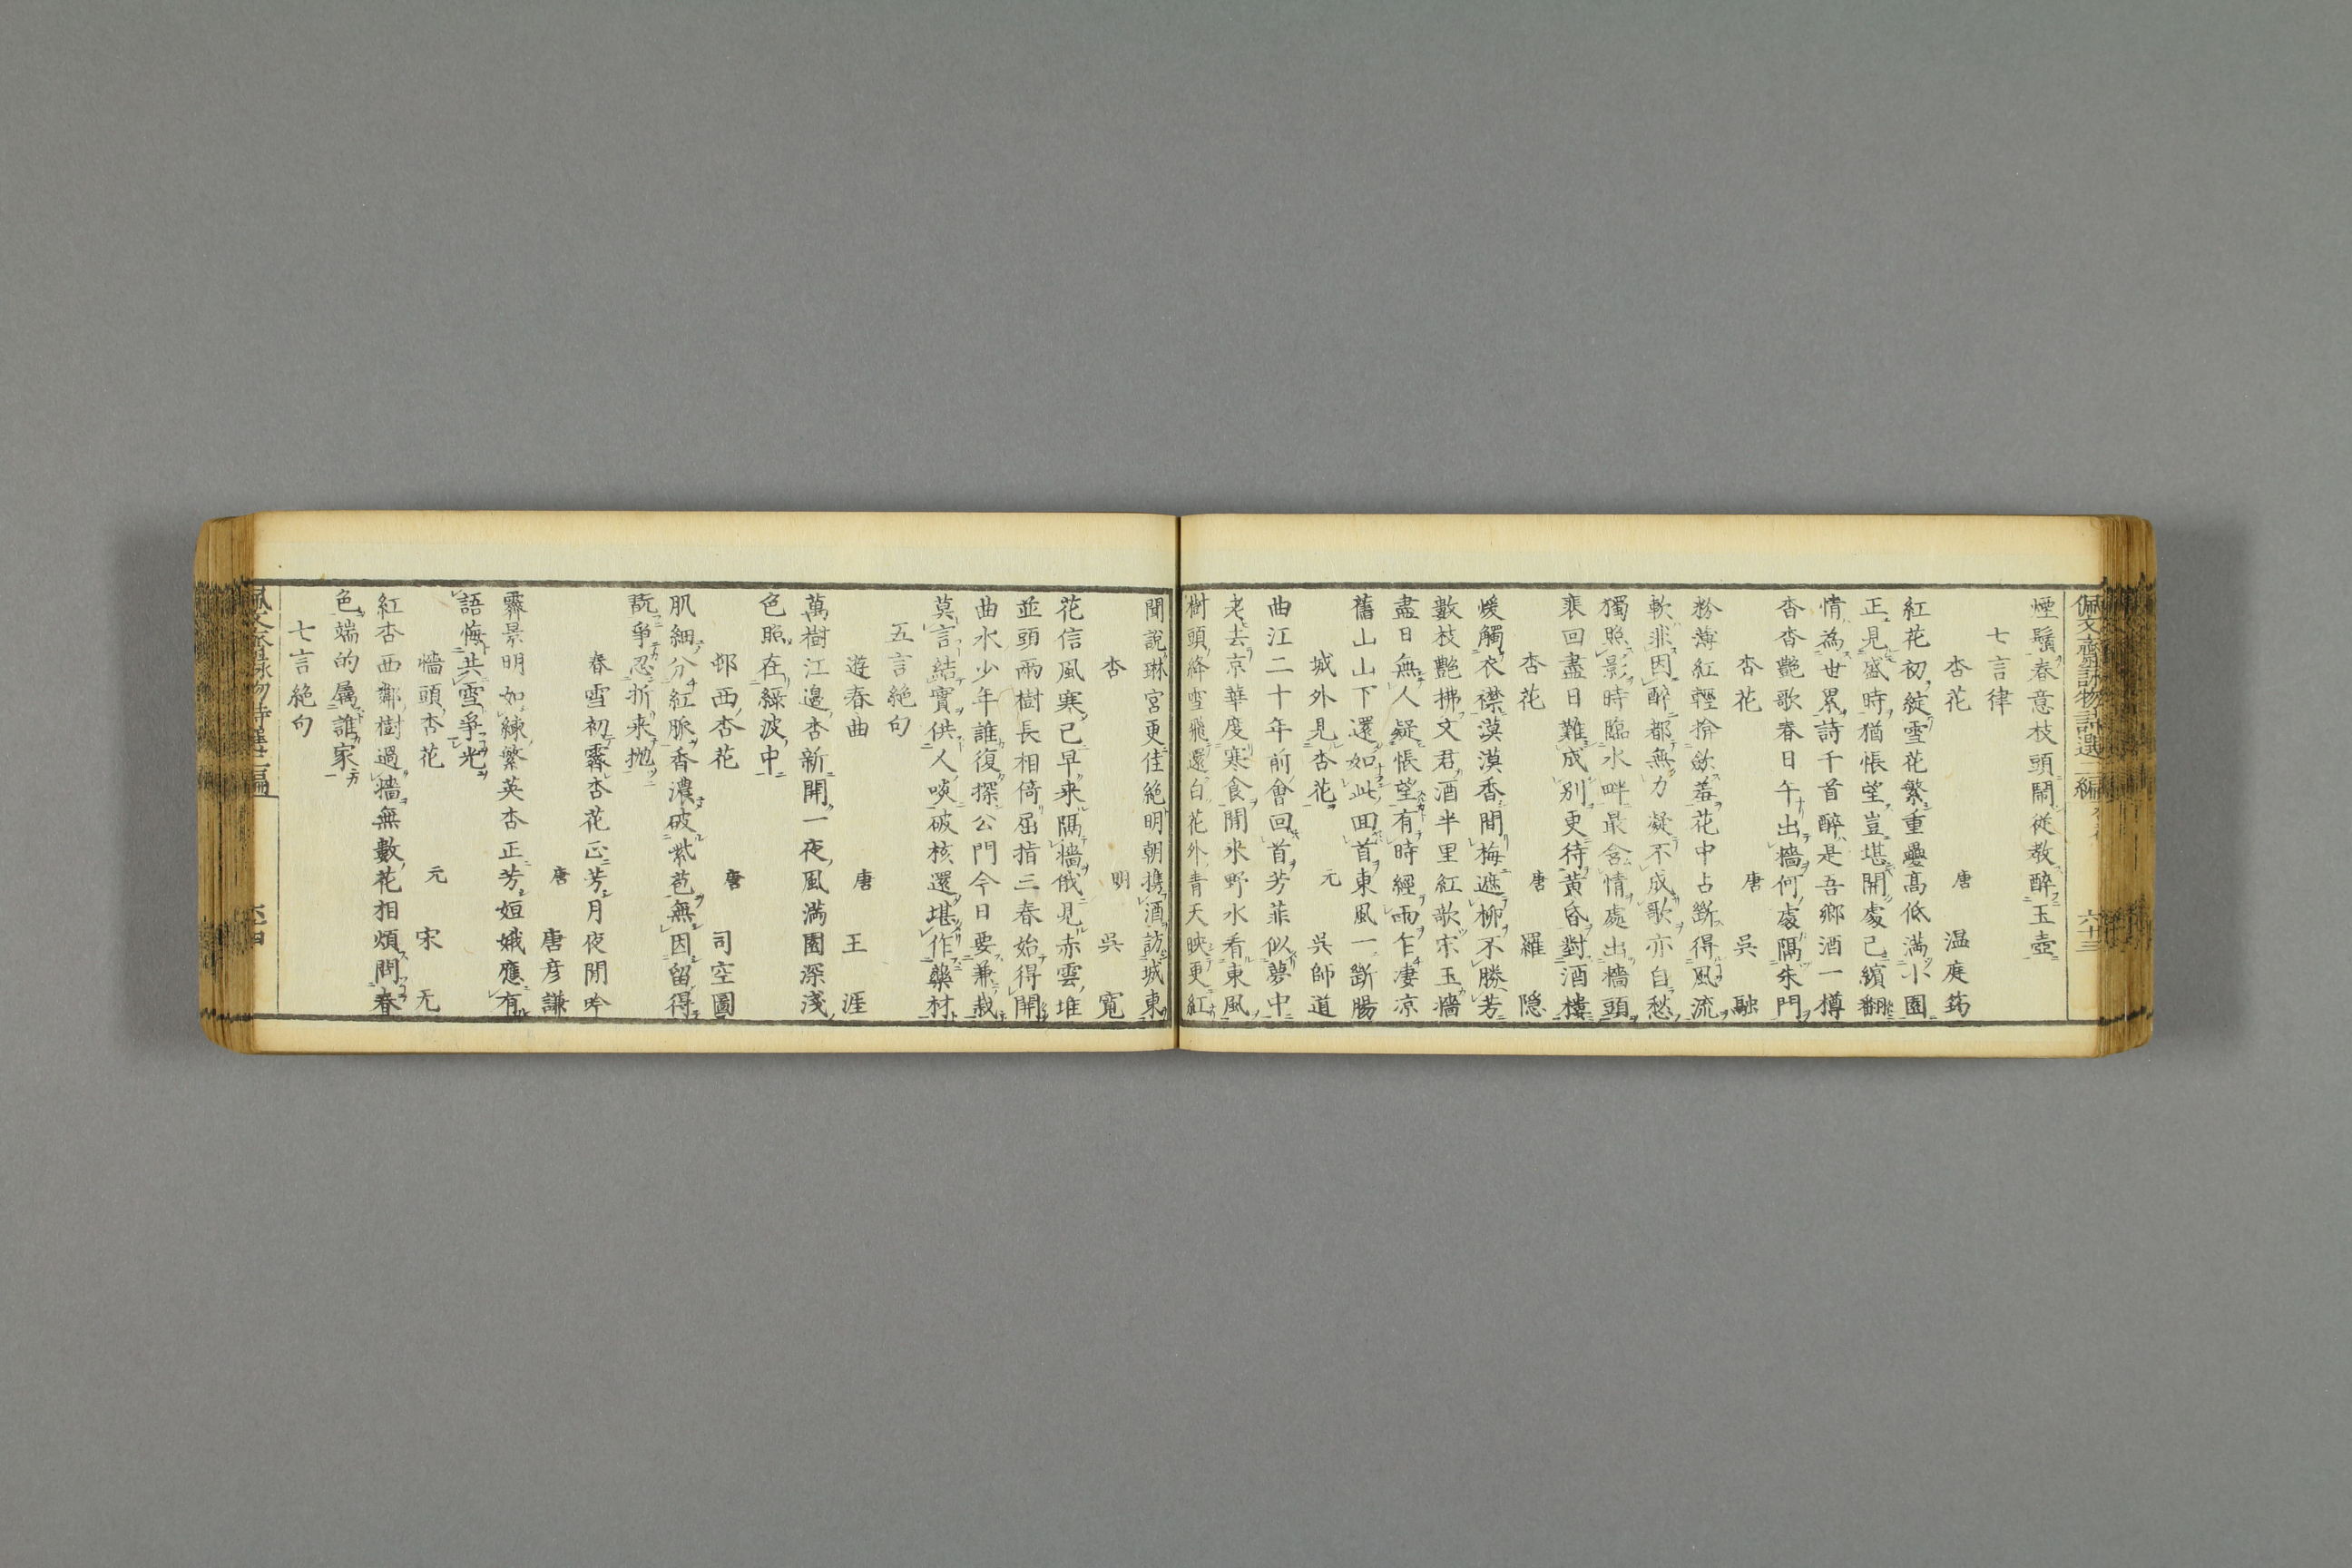 佩文齋詠物詩選二編 六十三
煙鬟春意枝頭鬧從教醉玉壺
七言律
杏花 唐 温庭筠
紅花初綻雪花繁重疊高低滿小園
正見盛時猶悵望豈堪開處已繽翻
情為世累詩千首醉是吾鄉酒一樽
杳杳艷歌春日午出墻何處隔朱門
杏花 唐 吳融
粉薄紅輕掩歛羞花中占斷得風流
軟非因醉都無力凝不成歌亦自愁
獨照影時臨水畔最含情處出墻頭
裴回盡日難成別更待黃昏對酒樓
杏花 唐 羅隠
煖觸衣襟漠漠香間梅遮柳不勝芳
數枝艷拂文君酒半里紅歌宋玉墻
盡日無人疑悵望有時經雨乍凄凉
舊山山下還如此回首東風一斷膓
城外見杏花 元 吳師道
曲江二十年前會回首芳菲似夢中
老去京華度寒食閒来野水看東風
樹頭絳雪飛還白花外青天映更紅
聞說琳宮更佳絕明朝携酒訪城東
杏 明 吳寬
花信風寒已早来隔墻俄見赤雲堆
並頭兩樹長相倚屈指三春始得開
曲水少年誰復探公門今日要兼栽
莫言結實供人啖破核還堪作藥材
五言絕句
遊春曲 唐 王涯
萬樹江邊杏新開一夜風滿園深淺
色照在綠波中
邨西杏花 唐 司空圖
肌細分紅脈香濃破紫苞無因留得
翫爭忍折来抛
春雪初霽杏花正芳月夜閒吟
唐 唐彦謙
霽景明如練繁英杏正芳姮娥應有
語悔共雪爭光
墻頭杏花 元 宋无
紅杏西鄰樹過墻無數花相煩問春
色端的屬誰家
七言絕句